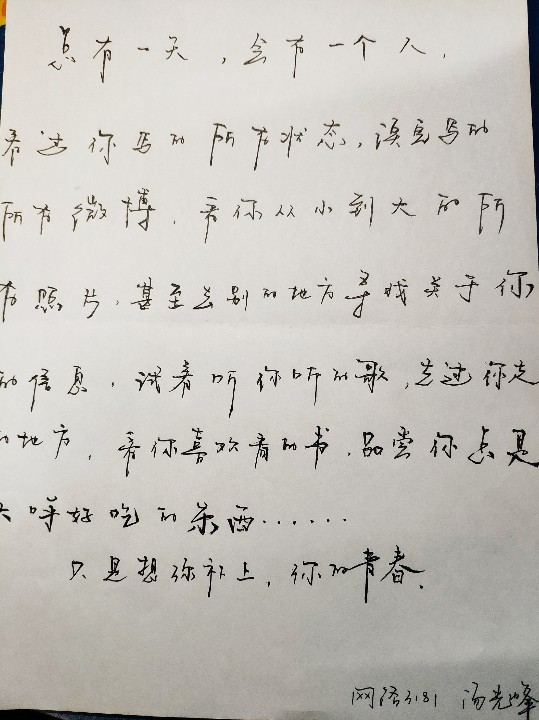 总有一天，会有一个人，
看过你写的所有状态，读完写的
所有微博，看你从小到大的所
有照片，甚至去别的地方寻找关于你
的信息，试着听你听的歌，走过你走
的地方，看你喜欢看的书，品尝你总是
大呼好吃的东西……
只是想弥补上，你的青春．
网络3181 汤光峰